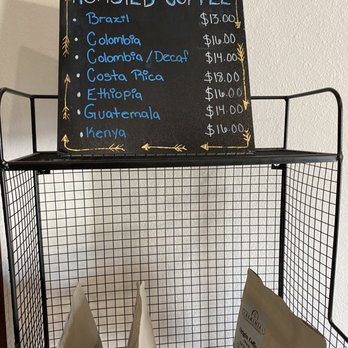 ROASTED COFFEE
• Brazil $13.00
• Colombia $16.00
• Colombia/Decaf $14.00
• Costa Rica $18.00
• Ethiopia $16.00
• Guatemala $14.00
• Kenya $16.00